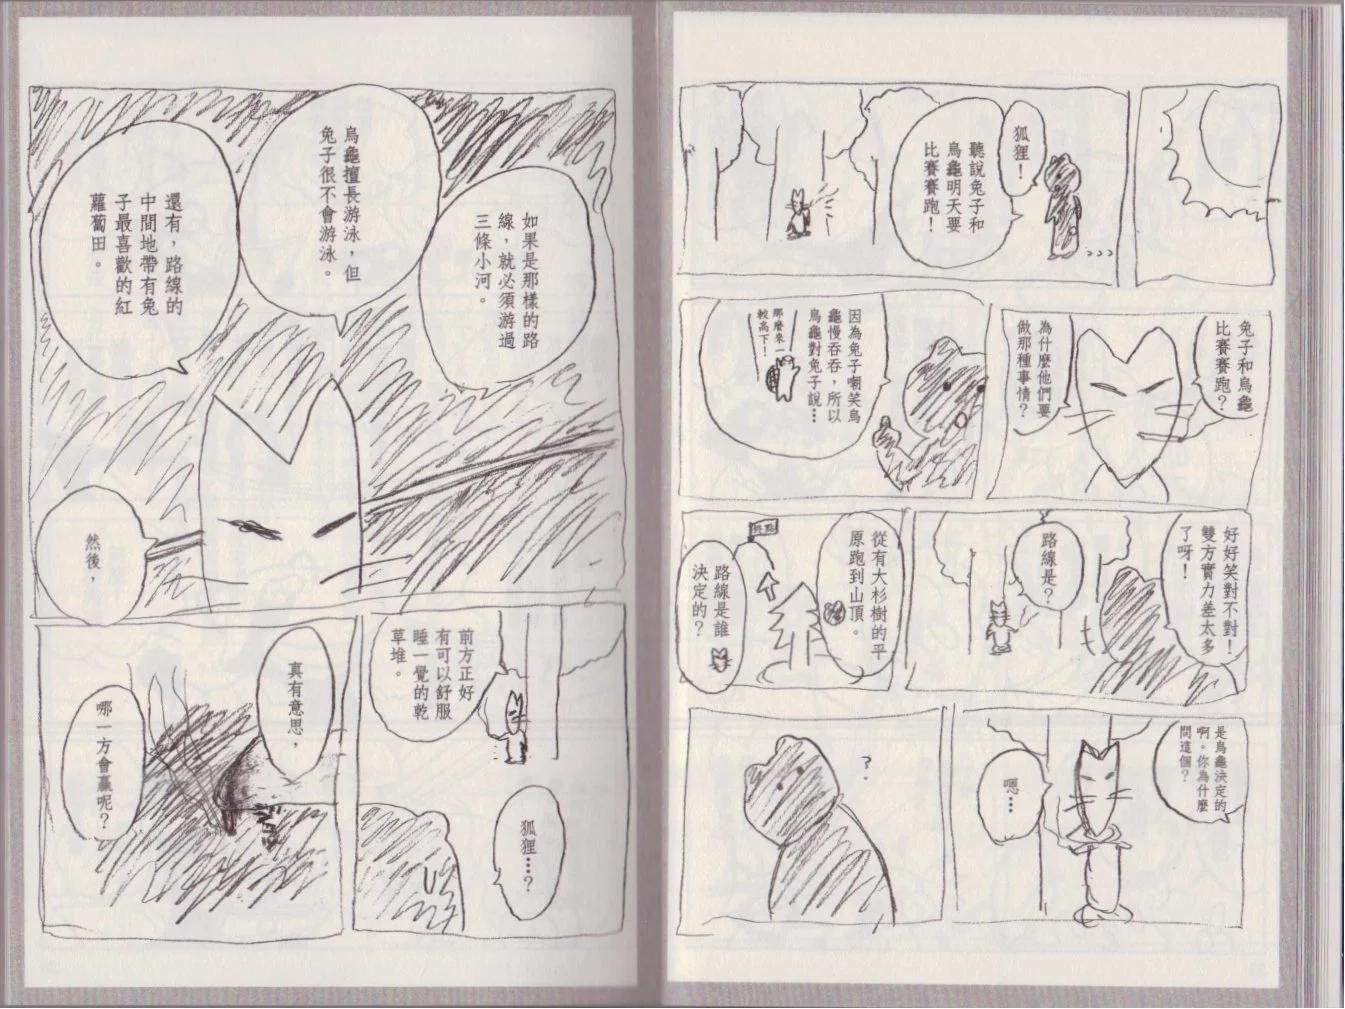 狐狸！
聽說兔子和
烏龜明天要
比賽賽跑！
兔子和烏龜
比賽賽跑？
為什麼他們要
做那種事情？
因為兔子嘲笑烏
龜慢吞吞，所以
烏龜對兔子說…
那麼來一
較高下！
好好笑對不對！
雙方實力差太多
了呀！
路線是？
從有大杉樹的平
原跑到山頂。
終點
路線是誰
決定的？
是烏龜決定的
啊。你為什麼
問這個？
嗯…
？
如果是那樣的路
線，就必須游過
三條小河。
烏龜擅長游泳，但
兔子很不會游泳。
還有，路線的
中間地帶有兔
子最喜歡的紅
蘿蔔田。
然後，
前方正好
有可以舒服
睡一覺的乾
草堆。
狐狸…？
真有意思，
哪一方會贏呢？